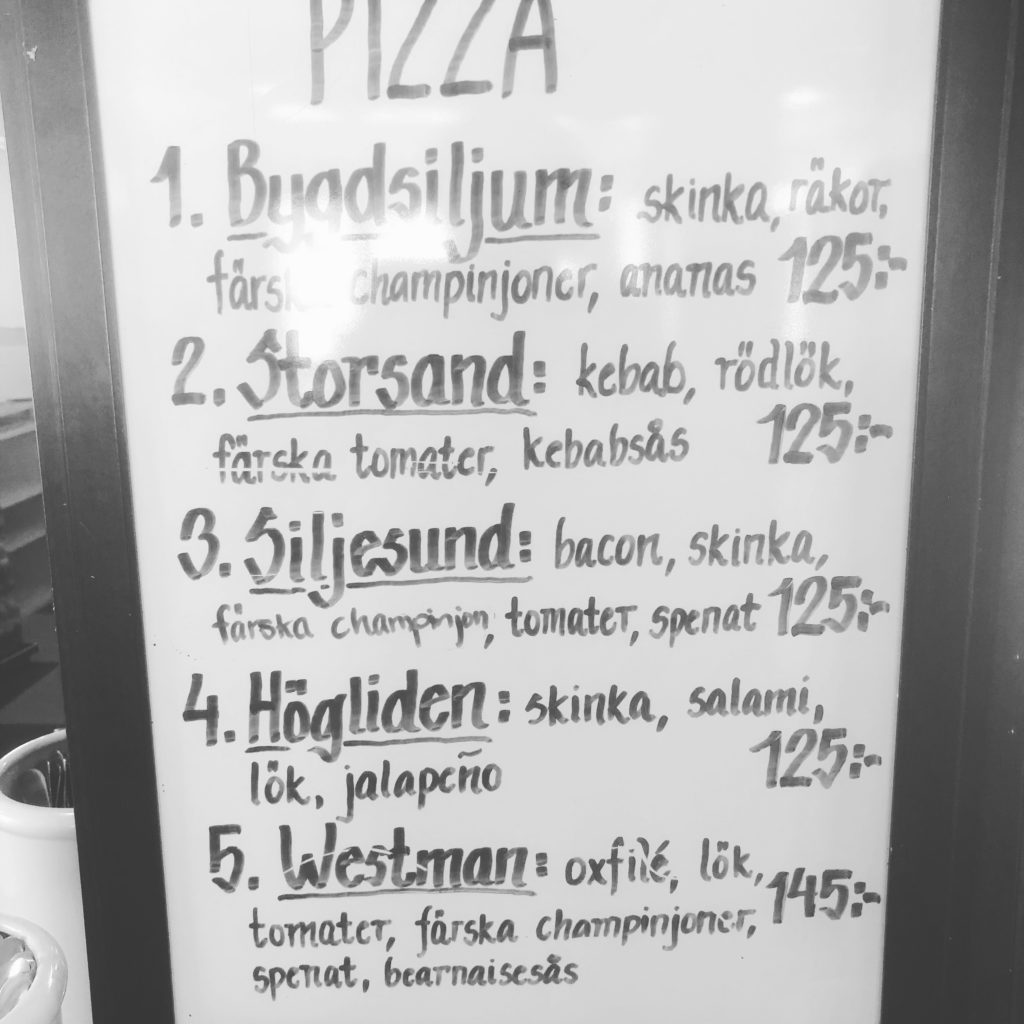 PIZZA
1. Bygdsiljum: skinka, räkor,
färska champinjoner, ananas 125:-
2. Storsand: kebab, rödlök,
färska tomater, kebabsås 125:-
3. Siljesund: bacon, skinka,
färska champinjon, tomater, spenat 125:-
4. Högliden: skinka, salami,
lök, jalapeño 125:-
5. Westman: oxfilé, lök,
tomater, färska champinjoner, 145:-
spenat, bearnaisesås